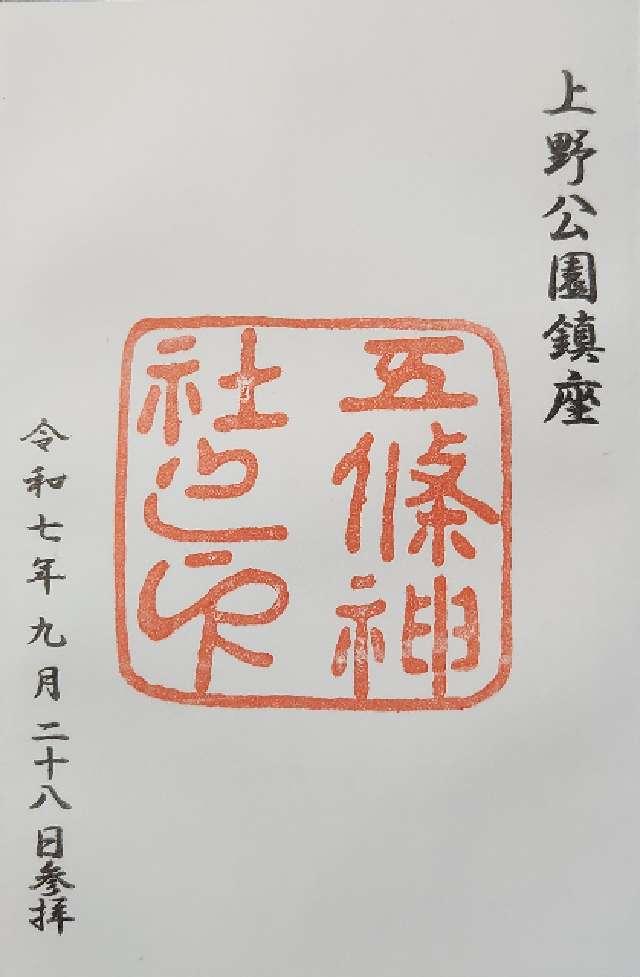 上野公園鎮座
五條神
社之印
令和七年九月二十八日参拝